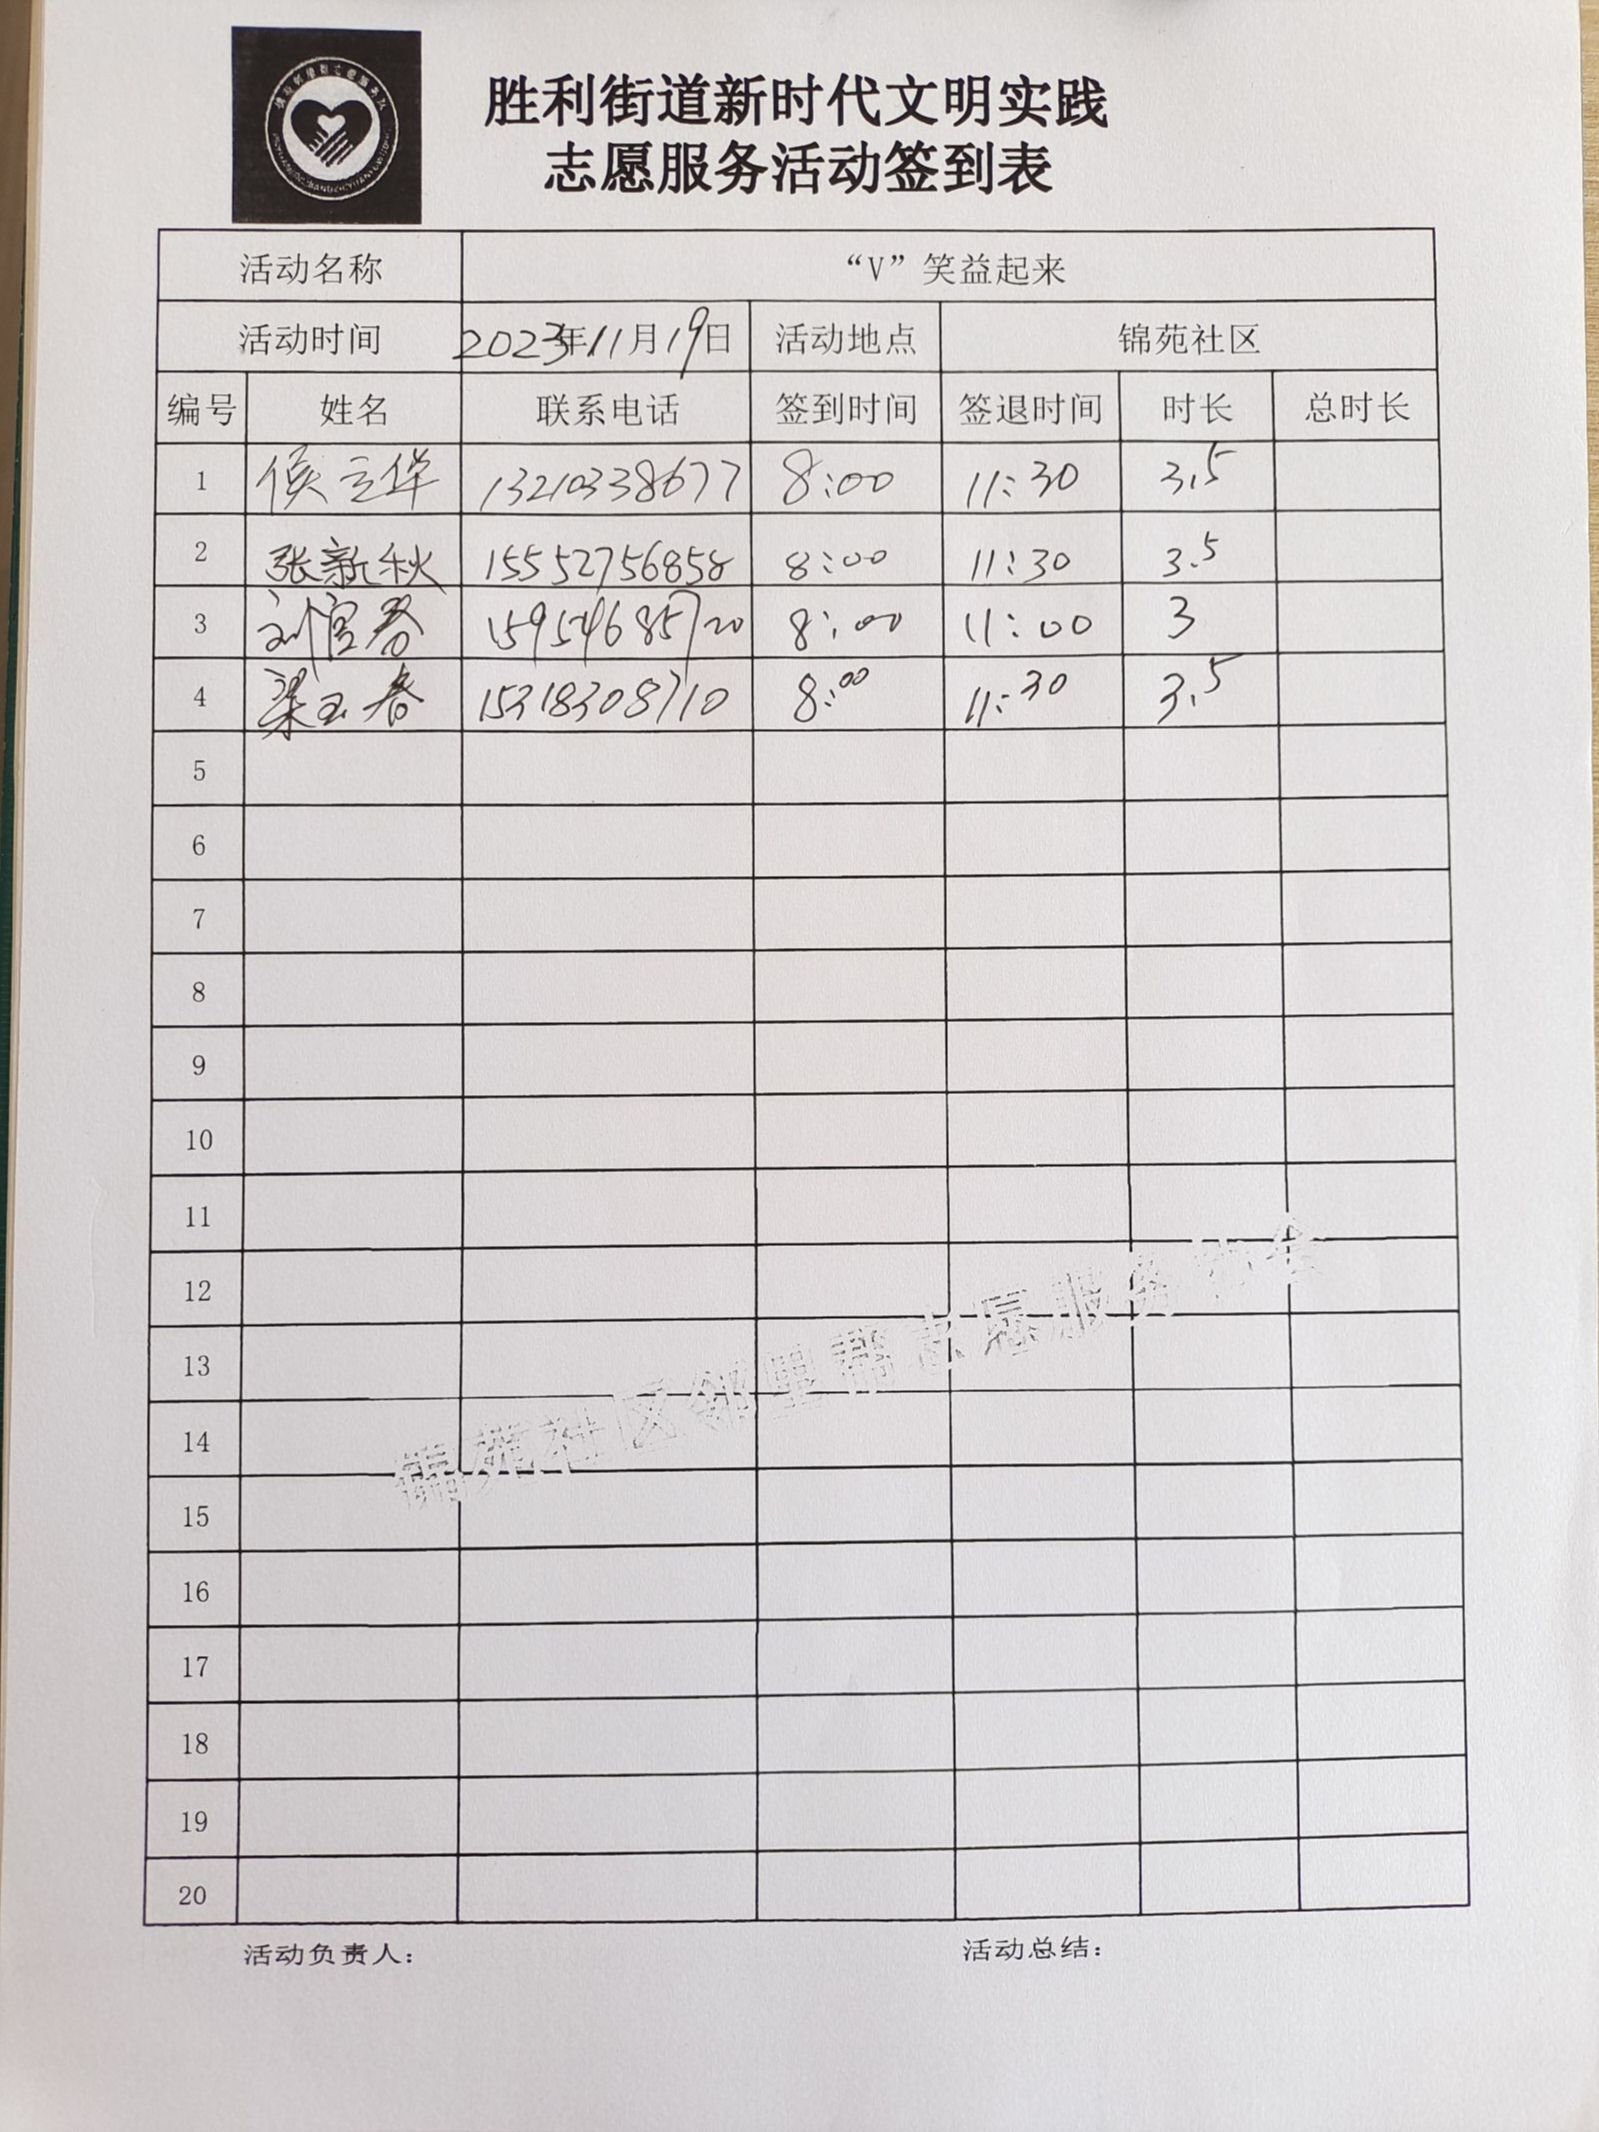 胜利街道新时代文明实践
志愿服务活动签到表
活动名称 “V”笑益起来
活动时间 2023年11月19日 活动地点 锦苑社区
编号 姓名 联系电话 签到时间 签退时间 时长 总时长
1 侯立华 13210338677 8:00 11:30 3.5
2 张新秋 15552756858 8:00 11:30 3.5
3 刘官春 15954685720 8:00 11:00 3
4 梁玉春 15318308710 8:00 11:30 3.5
5
6
7
8
9
10
11
12
13
14
15
16
17
18
19
20
锦苑社区邻里帮志愿服务协会
活动负责人： 活动总结：